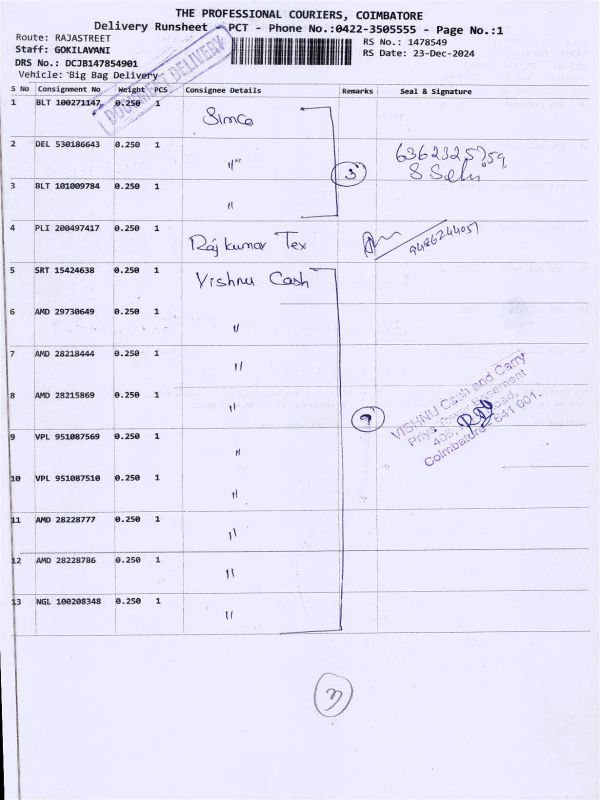 THE PROFESSIONAL COURIERS, COIMBATORE
Delivery Runsheet - PCT - Phone No.:0422-3505555 - Page No.:1
Route: RAJASTREET
RS No.: 1478549
Staff: GOKILAVANI
RS Date: 23-Dec-2024
DRS No.: DCJB147854901
Vehicle: Big Bag Delivery
DELIVERY
S No Consignment No Weight PCS Consignee Details Remarks Seal & Signature
1 BLT 100271147 0.250 1 Simco
2 DEL 530186643 0.250 1 〃
3
3 BLT 101009784 0.250 1 〃
4 PLI 200497417 0.250 1 Raj kumar Tex 9486244051
5 SRT 15424638 0.250 1 Vishnu Cash
6 AMD 29730649 0.250 1 〃
7 AMD 28218444 0.250 1 〃
8 AMD 28215869 0.250 1 〃
9
VISHNU Cash and Carry
Coimbatore - 641 001.
9 VPL 951087569 0.250 1 〃
10 VPL 951087510 0.250 1 〃
11 AMD 28228777 0.250 1 〃
12 AMD 28228786 0.250 1 〃
13 NGL 100208348 0.250 1 〃